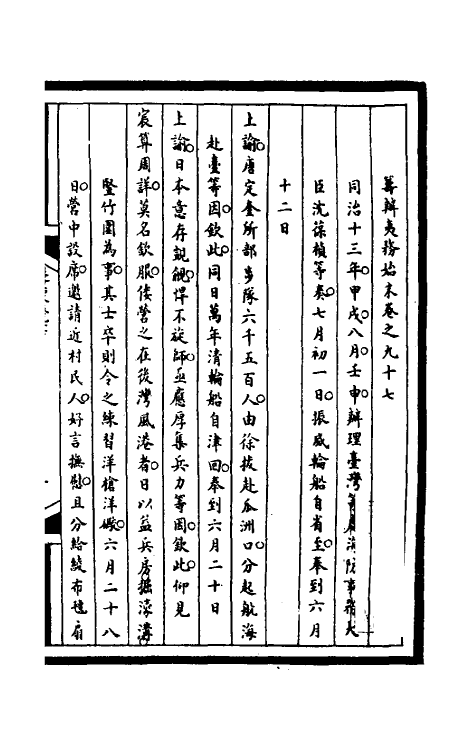 籌辦夷務始末卷之九十七
同治十三年甲戌八月壬申辦理臺灣等處海防事務大
臣沈葆楨等奏七月初一日振威輪船自省至奉到六月
十二日
上諭唐定奎所部步隊六千五百人由徐拔赴瓜洲口分起航海
赴臺等因欽此同日萬年清輪船自津回奉到六月二十日
上諭日本意存覬覦悍不旋師亟應厚集兵力等因欽此仰見
宸算周詳莫名欽服倭營之在後灣風港者日以益兵房掘濠溝
豎竹圍為事其士卒則令之練習洋槍洋礮六月二十八
日營中設席邀請近村民人好言撫慰且分給絨布氊扇